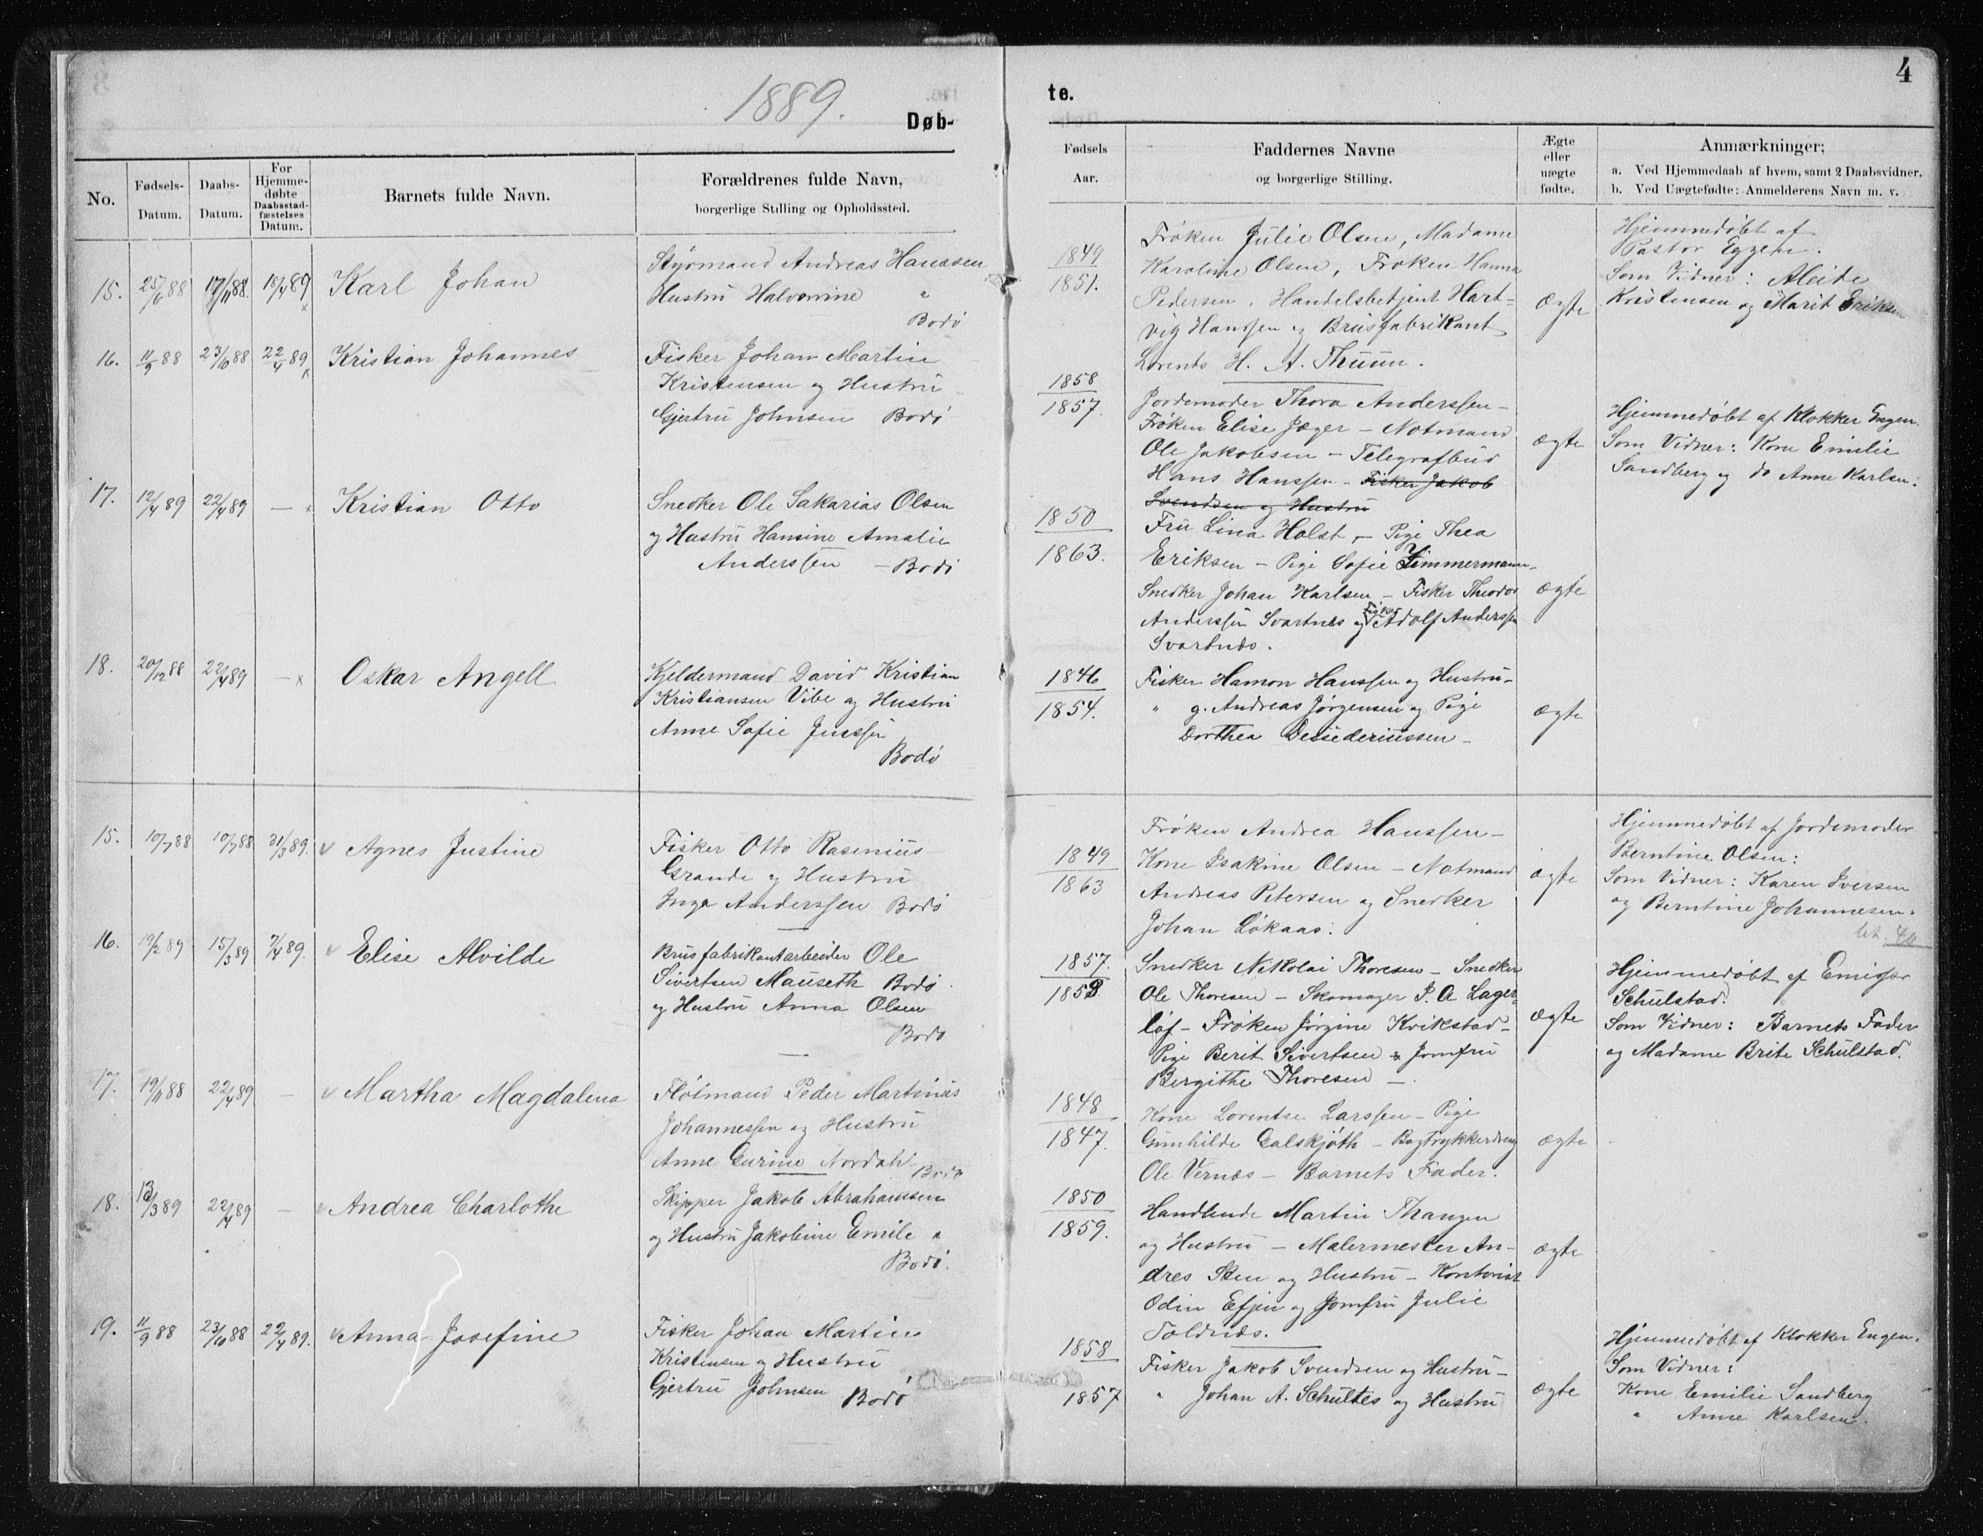 1889.
4
Døb-
te.
No.
Fødsels-
Datum.
Daabs-
Datum.
For
Hjemme-
døbte
Daabsstad-
fæstelses
Datum.
Barnets fulde Navn.
Forældrenes fulde Navn,
borgerlige Stilling og Opholdssted.
Fødsels
Aar.
Faddernes Navne
og borgerlige Stilling.
Ægte
eller
uægte
fødte.
Anmærkninger;
a. Ved Hjemmedaab af hvem, samt 2 Daabsvidner.
b. Ved Uægtefødte: Anmelderens Navn m. v.
15. 17/11 88. 18/4 89 Karl Johan
Styrmand Andreas Hanssen
Hustru Halvorine "
Bodø
1849
1851.
Frøken Julie Olsen, Madame
Karoline Olsen, Frøken Hanna
Pedersen, Handelsbetjent Hart-
vig Hanssen og Brusfabrikant
Lorents H. A. Thuun.
Ægte
Hjemmedøbt af
Pastor
Som Vidner: Aleide
Kristensen og Marit Eriksen
16. 11/9 88 23/10 88 22/4 89 Kristian Johannes
Fisker Johan Martin
Kristensen og Hustru
Gjertru Johnsen Bodø
1858
1857.
Jordemoder Thora Anderssen -
Frøken Elise Jæger - Notmand
Ole Jakobsen - Telegrafbud
Hans Hanssen - Fisker Jakob
Svendsen og Hustru
ægte
Hjemmedøbt af Klokker Engen.
Som Vidner: Kone Emilie
Sandberg og do Anne Karlsen:
17. 12/4 89 22/4 89 - Kristian Otto
Snedker Ole Sakarias Olsen
og Hustru Hansine Amalie
Anderssen - Bodø
1850
1863.
Fru Lina Holst, - Pige Thea
Eriksen - Pige Sofie Zimmermann -
Snedker Johan Karlsen - Fisker Theodor
Anderssen Svartnes og Fisker Adolf Anderssen
Svartnes.
ægte
18. 20/12 88 22/4 89 - Oskar Angell
Kjeldermand David Kristian
Kristiansen Vibe og Hustru
Anne Sofie Jenssen
Bodø
1846
1854.
Fisker Hamon Hanssen og Hustru -
" g. Andreas Jørgensen og Pige
Dorthea Desideriussen -
ægte
15. 10/7 88 10/7 88 31/3 89. Agnes Justine
Fisker Otto Rasenius
Grande og Hustru
Inga Anderssen Bodø
1849
1863
Frøken Andrea Hanssen -
Kone Isakine Olsen - Notmand
Andreas Petersen og Snedker
Johan Løkaas.
ægte
Hjemmedøbt af Jordemoder
Berntine Olsen:
Som Vidner: Karen Iversen
og Berntine Johannesen.
16. 19/2 89 15/3 89 7/4 89. Elise Alvilde
Brusfabrikantarbeider Ole
Sivertsen Mauseth Bodø
og Hustru Anna Olsen
Bodø
1857.
1853
Snedker Nikolai Thoresen - Snedker
Ole Thoresen - Skomager P. A Lager-
løf - Frøken Jørgine Kvikstad -
Pige Berit Sivertsen & Jomfru
Bergithe Thoresen -
ægte
Hjemmedøbt af Emissær
Schulstad.
Som Vidner: Barnets Fader
og Madame Brite Schulstad.
17. 19/11 88 22/4 89 - Martha Magdalena
Fløtmand Peder Martinus
Johannessen og Hustru
Anne Gurine Nordahl Bodø
1848
1847.
Kone Lorentse Larssen - Pige
Gunhilde Galskjøth - Bogtrykkerdreng
Ole Vernæs - Barnets Fader.
ægte
18. 13/3 89 22/4 89 - Andrea Charlothe
Skipper Jakob Abrahamsen
og Hustru Jakobine Emilie "
Bodø.
1850
1859.
Handlende Martin Thangen
og Hustru - Malermester An-
dres Sten og Hustru - Kontorist
Odin Efjen og Jomfru Julie
Toldnæs.
ægte
19. 11/9 88 23/10 88 22/4 89. Anna Josefine
Fisker Johan Martin
Kristensen og Hustru
Gjertru Johnsen Bodø
1858
1857
Fisker Jakob Svendsen og Hustru -
" Johan A. Schultes og Hustru
ægte
Hjemmedøbt af Klokker Engen.
Som Vidner:
Kone Emilie Sandberg
" Anne Karlsen.